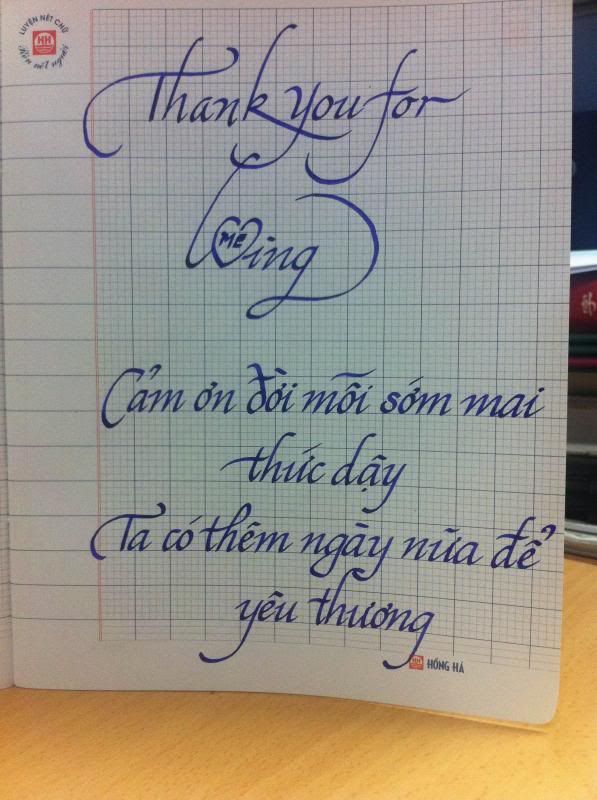 LUYỆN NÉT CHỮ
HH
Rèn nết người
Thank you for
loving
ME
Cảm ơn đời mỗi sớm mai
thức dậy
Ta có thêm ngày nữa để
yêu thương
HH HỒNG HÀ